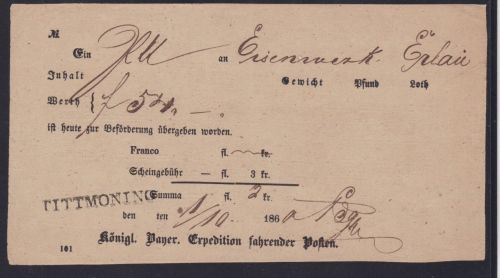 №
Ein an Eisenwerk Erlau
Inhalt Gewicht Pfund Loth
Werth { f 54. —
ist heute zur Beförderung übergeben worden.
Franco fl. — kr.
Scheingebühr — fl. 3 kr.
Summa fl. 3 kr.
TITTMONING
den ten 11/10 186
Königl. Bayer. Expedition fahrender Posten.
101